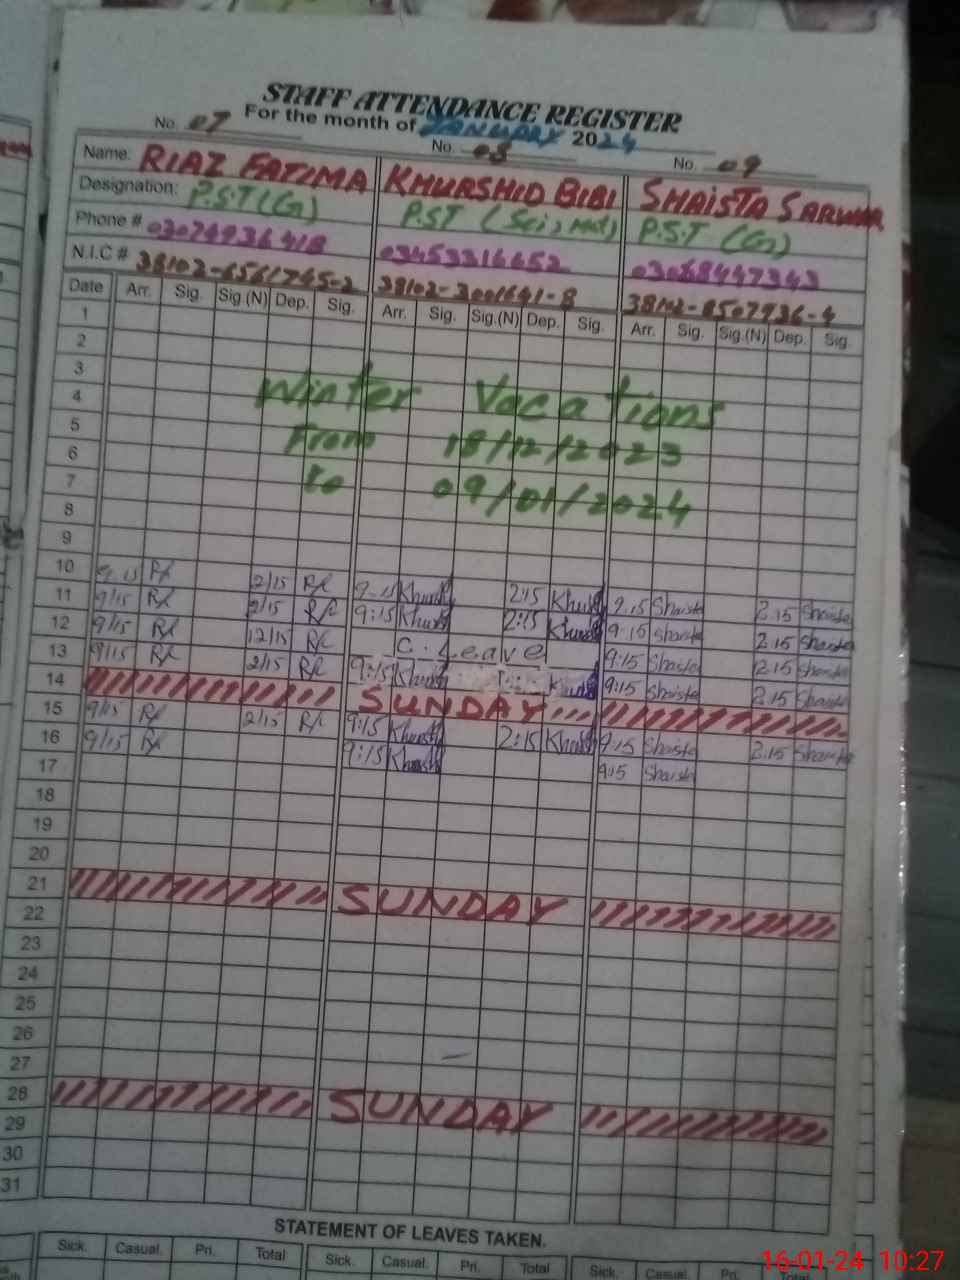 STAFF ATTENDANCE REGISTER
For the month of JANUARY 2024
No. 07 No. 08 No. 09
Name: RIAZ FATIMA KHURSHID BIBI SHAISTA SARWAR
Designation: P.S.T (G) PST (Sci, Mat) P.S.T (G)
Phone # 03074936418 03453316652 03068447343
N.I.C # 38102-6561745-2 38102-3001641-8 38102-8507936-4
Date Arr. Sig. Sig.(N) Dep. Sig. Arr. Sig. Sig.(N) Dep. Sig. Arr. Sig. Sig.(N) Dep. Sig.
1
2
3
4 Winter Vacations
5
6 From 18/12/2023
7 to 09/01/2024
8
9
10 9:15 2/15 9-15 Khursh 2:15 Khursh 9.15 Shaista 2.15 Shaista
11 9/15 2/15 9:15 Khursh 2:15 Khursh 9.15 Shaista 2.15 Shaista
12 9/15 12/15 C. Leave 9:15 Shaista 2.15 Shaista
13 9/15 2/15 9:15 Khursh Khursh 9:15 Shaista 2.15 Shaista
14 SUNDAY
15 9/15 2/15 9:15 Khursh 2:15 Khursh 9.15 Shaista 2.15 Shaista
16 9/15 9:15 Khursh 9:15 Shaista
17
18
19
20
21 SUNDAY
22
23
24
25
26
27
28 SUNDAY
29
30
31
STATEMENT OF LEAVES TAKEN.
Sick. Casual. Pri. Total Sick. Casual. Pri. Total Sick. Casual. Pri. Total
16-01-24 10:27